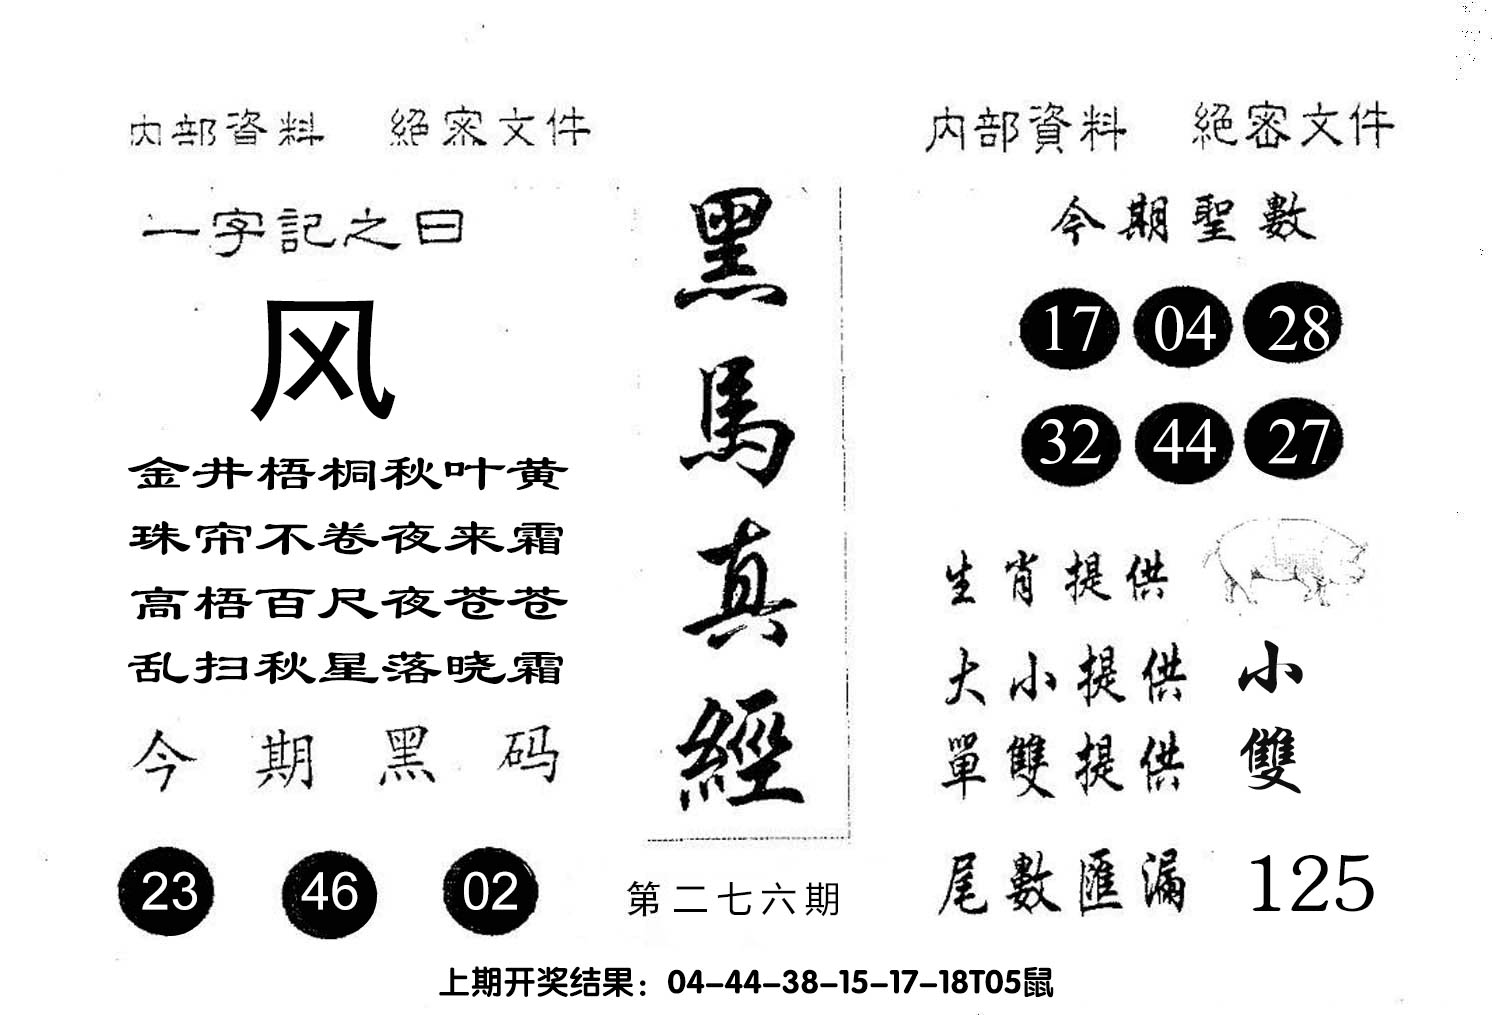 内部資料 絕密文件
一字記之曰
风
金井梧桐秋叶黄
珠帘不卷夜来霜
高梧百尺夜苍苍
乱扫秋星落晓霜
今期黑码
23 46 02
黑馬真經
第二七六期
内部資料 絕密文件
今期聖數
17 04 28
32 44 27
生肖提供
大小提供 小
單雙提供 雙
尾數匯漏 125
上期开奖结果：04-44-38-15-17-18T05鼠